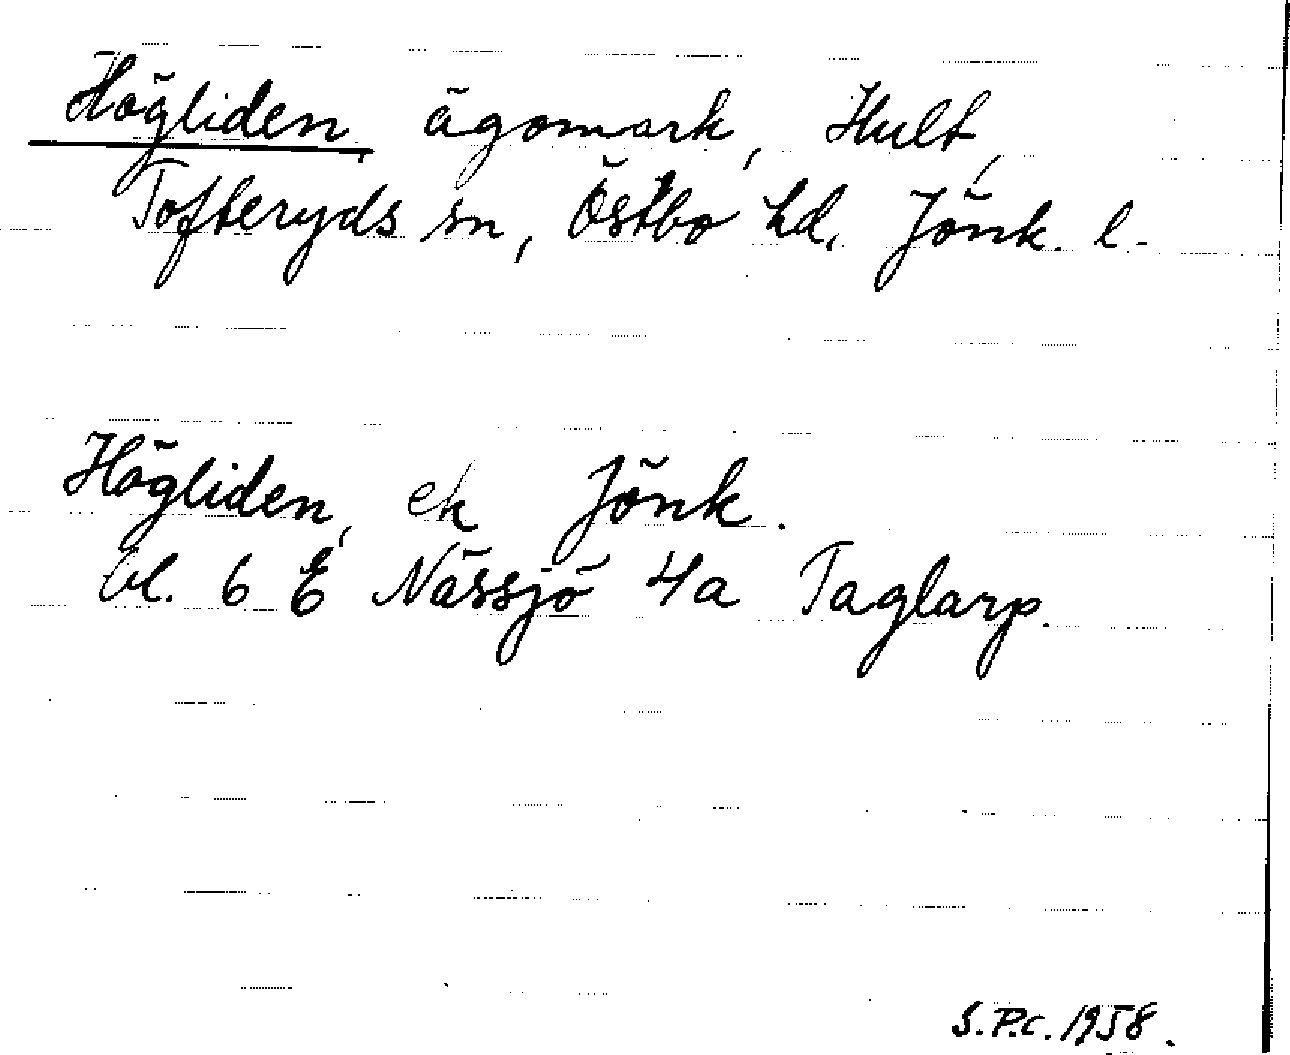 Högliden, ägomark, Hult,
Tofteryds sn, Östbo hd, Jönk. l.
Högliden, ek Jönk.
bl. 6 E Nässjö 4a Taglarp.
S.P.C. 1958.